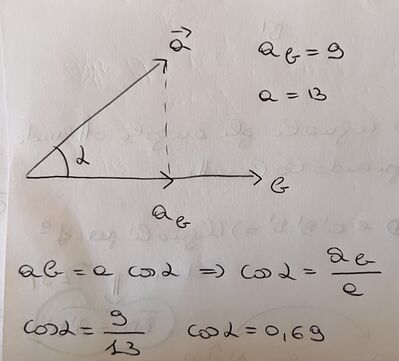 a⃗
a_b = 9
a = 13
α
a_b
b
a_b = a cosα ⇒ cosα = a_b / a
cosα = 9 / 13 cosα = 0,69